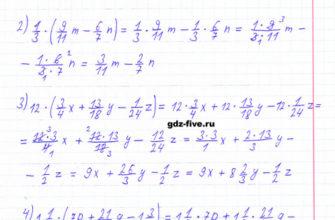 2) 1/3 · (9/11 m − 6/7 n) = 1/3 · 9/11 m − 1/3 · 6/7 n = 1·9³/3₁·11 m −
− 1·6²/3₁·7 n = 3/11 m − 2/7 n
3) 12 · (3/4 x + 13/18 y − 1/24 z) = 12 · 3/4 x + 12 · 13/18 y − 12 · 1/24 z =
gdz-five.ru
= ³12·3/4₁ x + ²12·13/18₃ y − 12/24 z = 3·3/1 x + 2·13/3 y −
− 1/2 z = 9x + 26/3 y − 1/2 z = 9x + 8 2/3 y − 1/2 z